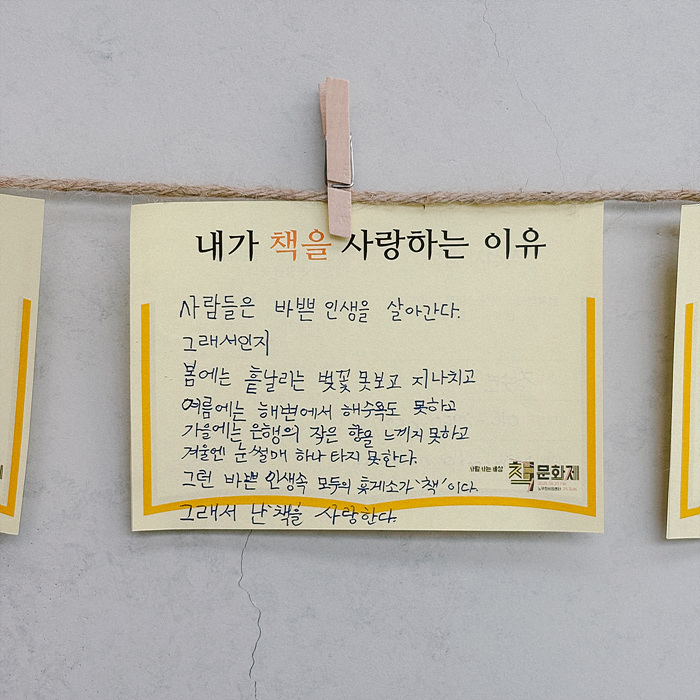 내가 책을 사랑하는 이유
사람들은 바쁜 인생을 살아간다.
그래서인지
봄에는 흩날리는 벚꽃 못보고 지나치고
여름에는 해변에서 해수욕도 못하고
가을에는 은행의 작은 향을 느끼지 못하고
겨울엔 눈썰매 하나 타지 못한다.
그런 바쁜 인생속 모두의 휴게소가 '책'이다.
그래서 난 책을 사랑한다.
사람 사는 세상
책문화제